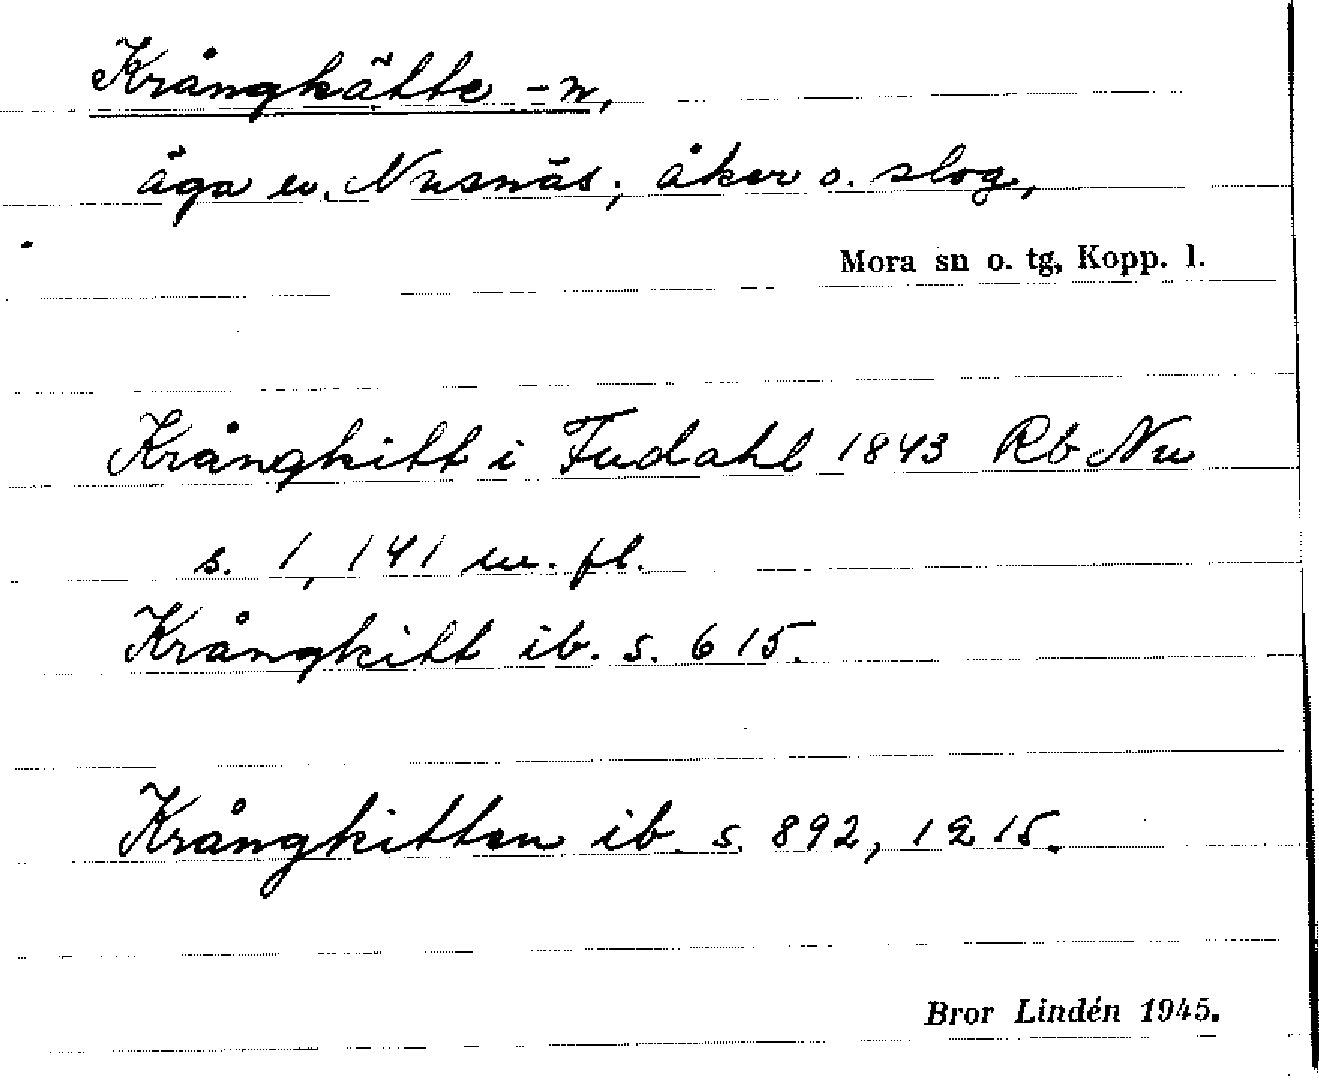 Krångkätte -n,
äga w. Nusnäs; åker o. slog,
Mora sn o. tg, Kopp. l.
Krångkitt i Fudahl 1843 Rb Nu
s. 1, 141 m. fl.
Krångkitt ib. s. 615.
Krångkitten ib. s. 892, 1215.
Bror Lindén 1945.